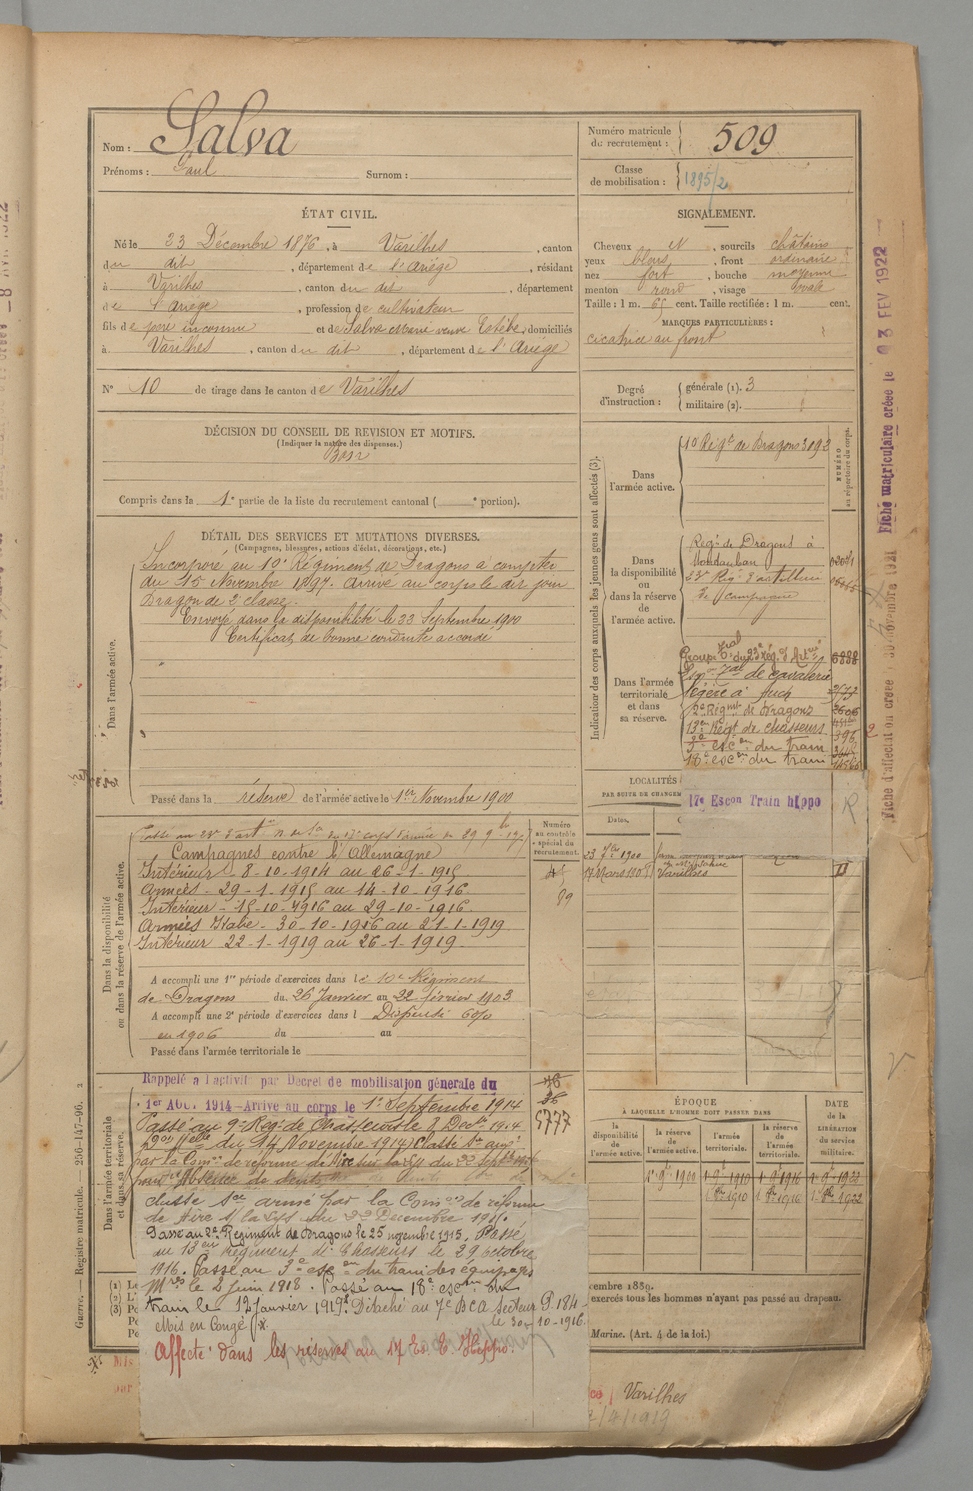 Nom : Salva
Prénoms : Paul Surnom :
Numéro matricule du recrutement : 509
Classe de mobilisation : 1895/2
ÉTAT CIVIL.
Né le 23 Décembre 1876, à Varilhes, canton
du dit, département de l'Ariège, résidant
à Varilhes, canton du dit, département
de l'Ariège, profession de cultivateur
fils de père inconnu et de Salva Marie veuve Estèbe, domiciliés
à Varilhes, canton du dit, département de l'Ariège
N° 10 de tirage dans le canton de Varilhes
SIGNALEMENT.
Cheveux N, sourcils châtains
yeux bleus, front ordinaire
nez fort, bouche moyenne
menton rond, visage ovale
Taille : 1 m. 65 cent. Taille rectifiée : 1 m. cent.
MARQUES PARTICULIÈRES :
cicatrice au front
Degré d'instruction : générale (1). 3
militaire (2).
DÉCISION DU CONSEIL DE REVISION ET MOTIFS.
(Indiquer la nature des dispenses.)
Bon
Compris dans la 1e partie de la liste du recrutement cantonal ( e portion).
DÉTAIL DES SERVICES ET MUTATIONS DIVERSES.
(Campagnes, blessures, actions d'éclat, décorations, etc.)
Dans l'armée active.
Incorporé au 10e Régiment de Dragons à compter
du 15 Novembre 1897. Arrivé au corps le dit jour
Dragon de 2e classe.
Envoyé dans la disponibilité le 22 Septembre 1900
Certificat de bonne conduite accordé
Passé dans la réserve de l'armée active le 1er Novembre 1900
Indication des corps auxquels les jeunes gens sont affectés (3).
NUMÉRO au répertoire du corps.
Dans l'armée active.
10 Régt de Dragons 3093
Dans la disponibilité ou dans la réserve de l'armée active.
Régt de Dragons à
Montauban
23e Régt d'artillerie
de campagne
Dans l'armée territoriale et dans sa réserve.
Groupe Tral du 23e Rég. d'Artrie 6888
de cavalerie
légère à Auch
2e Régmt de Dragons
13e Régt de chasseurs
3e escon du train
18e escon du train
17e Escon Train hippo R
LOCALITÉS
PAR SUITE DE CHANGEM
Dates.
23 7bre 1900
17 Mars 1905 Varilhes
Numéro au contrôle spécial du recrutement.
89
Dans la disponibilité ou dans la réserve de l'armée active.
Campagnes contre l'Allemagne
Intérieur - 8-10-1914 au 26-1-1915
Armées - 29-1-1915 au 14-10-1916
Intérieur - 15-10-1916 au 29-10-1916.
Armées Italie - 30-10-1916 au 21-1-1919
Intérieur 22-1-1919 au 26-1-1919.
A accompli une 1re période d'exercices dans le 10e Régiment
de Dragons du 26 Janvier au 22 février 1903.
A accompli une 2e période d'exercices dans l Dispensé 60%
en 1906 du au
Passé dans l'armée territoriale le
Dans l'armée territoriale et dans sa réserve.
Rappelé à l'activité par Décret de mobilisation génerale du
1er AOUT 1914 - Arrivé au corps le 1er Septembre 1914
Passé au 9e Reg. de Chasseurs le 8 Décbre 1914
5777
classé Sce armé par la Comon de réforme
de Aire s/ la Lys du 22 Décembre 1915.
Passé au 2e Régiment de Dragons le 25 novembre 1915. Passé
au 13eme Régiment de Chasseurs le 29 octobre
1916. Passé au 3e escon du train des équipages
Mres le 2 juin 1918. Passé au 18e escon du
train le 12 Janvier 1919. Détaché au 7e BCA Secteur P. 184
le 30-10-1916.
Mis en Congé
Affecté dans les réserves au 17 Es. E. Hippo.
ÉPOQUE
À LAQUELLE L'HOMME DOIT PASSER DANS
la disponibilité de l'armée active.
la réserve de l'armée active.
l'armée territoriale.
la réserve de l'armée territoriale.
DATE de la LIBÉRATION du service militaire.
1er 9bre 1900 1er 9bre 1910 1er 9bre 1916 1er 9bre 1922
1er 8bre 1910 1er 8bre 1916 1er 8bre 1922
cembre 1889.
exercés tous les hommes n'ayant pas passé au drapeau.
Marine. (Art. 4 de la loi.)
Varilhes
/4/1919
Guerre. — Registre matricule. — 256-147-96.
Fiche matriculaire créée le 23 FEV 1922
Fiche d'affectation créée 30 novembre 1921